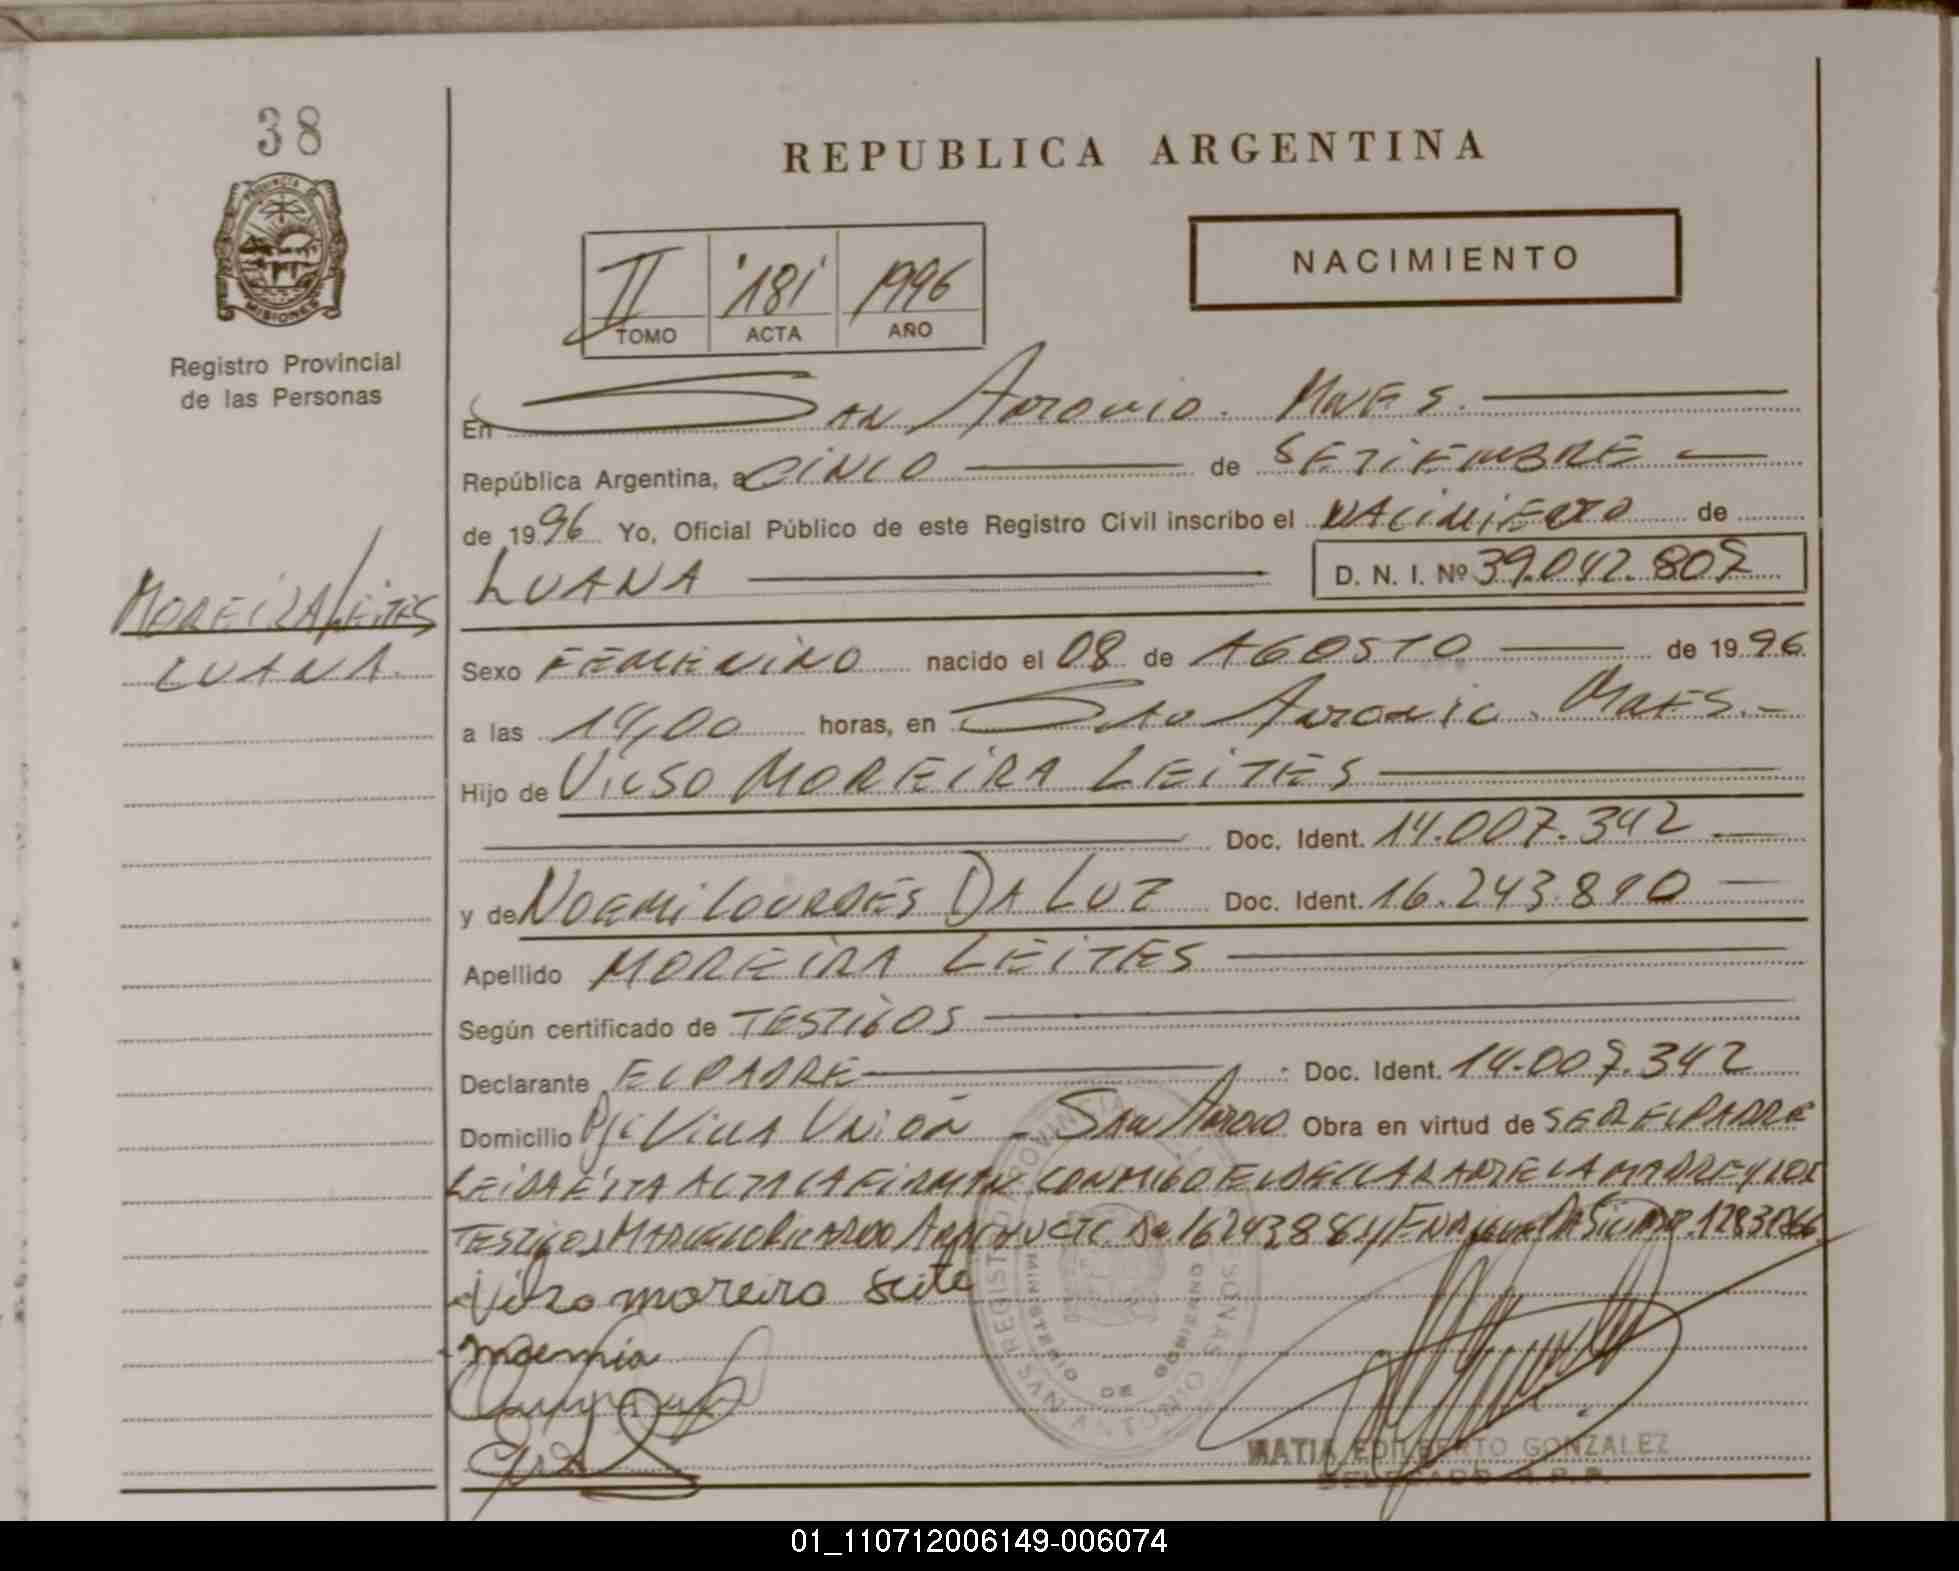 38
REPUBLICA ARGENTINA
PROVINCIA DE
MISIONES
Registro Provincial
de las Personas
II 181 1996
TOMO ACTA AÑO
NACIMIENTO
En San Antonio Mnes.
República Argentina, a CINCO de SETIEMBRE
de 1996 Yo, Oficial Público de este Registro Civil inscribo el NACIMIENTO de
LUANA D. N. I. Nº 39.042.807
MOREIRA LEITES
LUANA
Sexo FEMENINO nacido el 08 de AGOSTO de 1996
a las 14,00 horas, en San Antonio Mnes.-
Hijo de VILSO MOREIRA LEITES
Doc. Ident. 14.007.342
y de NOEMI LOURDES DA LUZ Doc. Ident. 16.243.890
Apellido MOREIRA LEITES
Según certificado de TESTIGOS
Declarante EL PADRE Doc. Ident. 14.007.342
Domicilio Pje Villa Unión - San Antonio Obra en virtud de SER EL PADRE
LEIDA ESTA ACTA LA FIRMAN CONMIGO EL DECLARANTE LA MADRE Y LOS
TESTIGOS MARCELO RICARDO
moreira
noemia
REGISTRO PROVINCIAL PERSONAS
MINISTERIO DE GOBIERNO
SAN ANTONIO
MATIA EDILBERTO GONZALEZ
DELEGADO R.P.P.
01_110712006149-006074